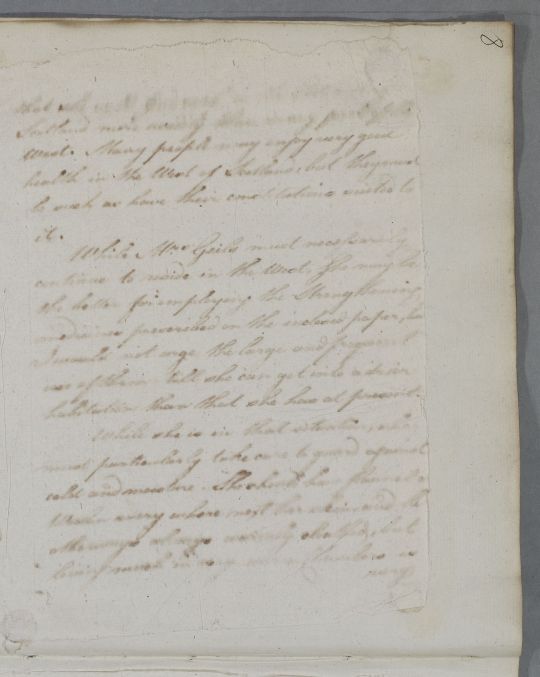 8
that she
Scotland more than any part of the
West. Many people may enjoy very good
health in the West of Scotland, but they must
be such as have their constitutions suited to
it.
While Mrs Geils must necessarily
continue to reside in the West, she may be
the better for employing the Strengthening
medicines prescribed in the inclosed paper, but
I would not urge the large and frequent
use of them till she can get into a drier
habitation than that she has at present.
While she is in that situation, she
must particularly take care to guard against
cold and moisture. She should have flannel
every where next her skin and be
otherways always warmly cloathed, but
living much in very warm Chambers is
very